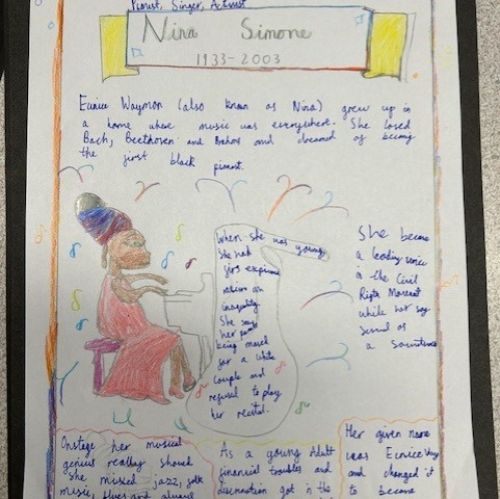 Pianist, Singer, Activist
Nina Simone
1933-2003
Eunice Waymon (also known as Nina) grew up in
a home where music was everywhere. She loved
Bach, Beethoven and Brahms and dreamed of being
the first black pianist.
When she was young
she had
first experience
racism and
inequality
She saw
her parents
being moved
for a white
couple and
refused to play
her recital.
She became
a leading voice
in the Civil
Rights Movement
while her song
served as
a soundtrack
Onstage her musical
genius really showed
She mixed jazz, folk
music, blues and
As a young Adult
financial troubles and
discrimination got in the
Her given name
was Eunice
and changed it
to become